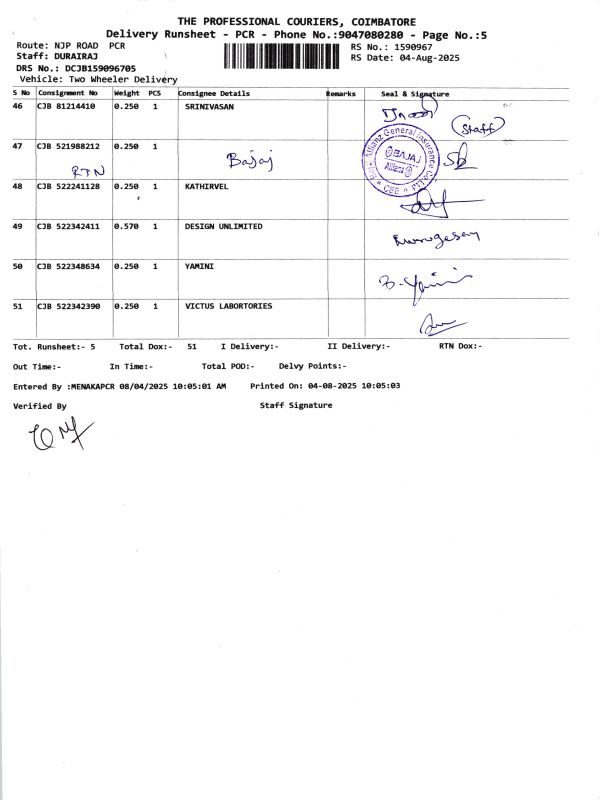 THE PROFESSIONAL COURIERS, COIMBATORE
Delivery Runsheet - PCR - Phone No.:9047080280 - Page No.:5
Route: NJP ROAD PCR
RS No.: 1590967
Staff: DURAIRAJ
RS Date: 04-Aug-2025
DRS No.: DCJB159096705
Vehicle: Two Wheeler Delivery
S No Consignment No Weight PCS Consignee Details Remarks Seal & Signature
46 CJB 81214410 0.250 1 SRINIVASAN
(Staff)
47 CJB 521988212 0.250 1
RTN Bajaj
Bajaj Allianz General Insurance Co.
BAJAJ
Allianz
48 CJB 522241128 0.250 1 KATHIRVEL
49 CJB 522342411 0.570 1 DESIGN UNLIMITED
Murugesan
50 CJB 522348634 0.250 1 YAMINI
B. Yamini
51 CJB 522342390 0.250 1 VICTUS LABORTORIES
Tot. Runsheet:- 5 Total Dox:- 51 I Delivery:- II Delivery:- RTN Dox:-
Out Time:- In Time:- Total POD:- Delvy Points:-
Entered By :MENAKAPCR 08/04/2025 10:05:01 AM Printed On: 04-08-2025 10:05:03
Verified By Staff Signature